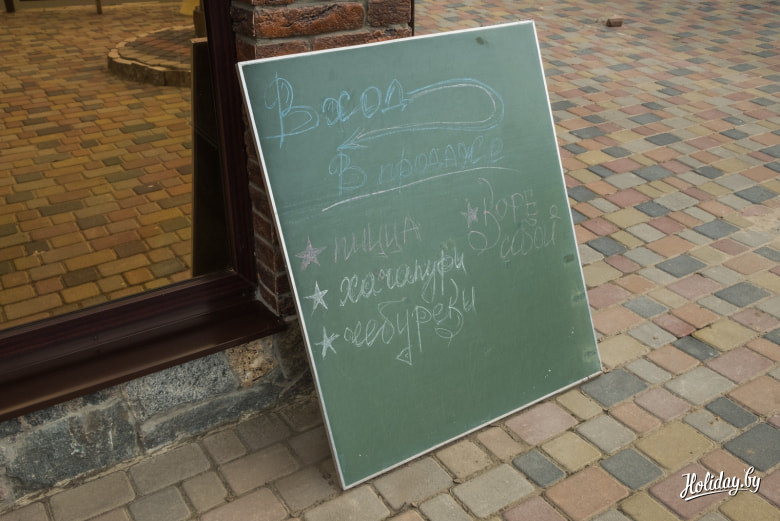 Вход
В продаже
пицца
хачапури
чебуреки
Кофе
с собой
Holiday.by